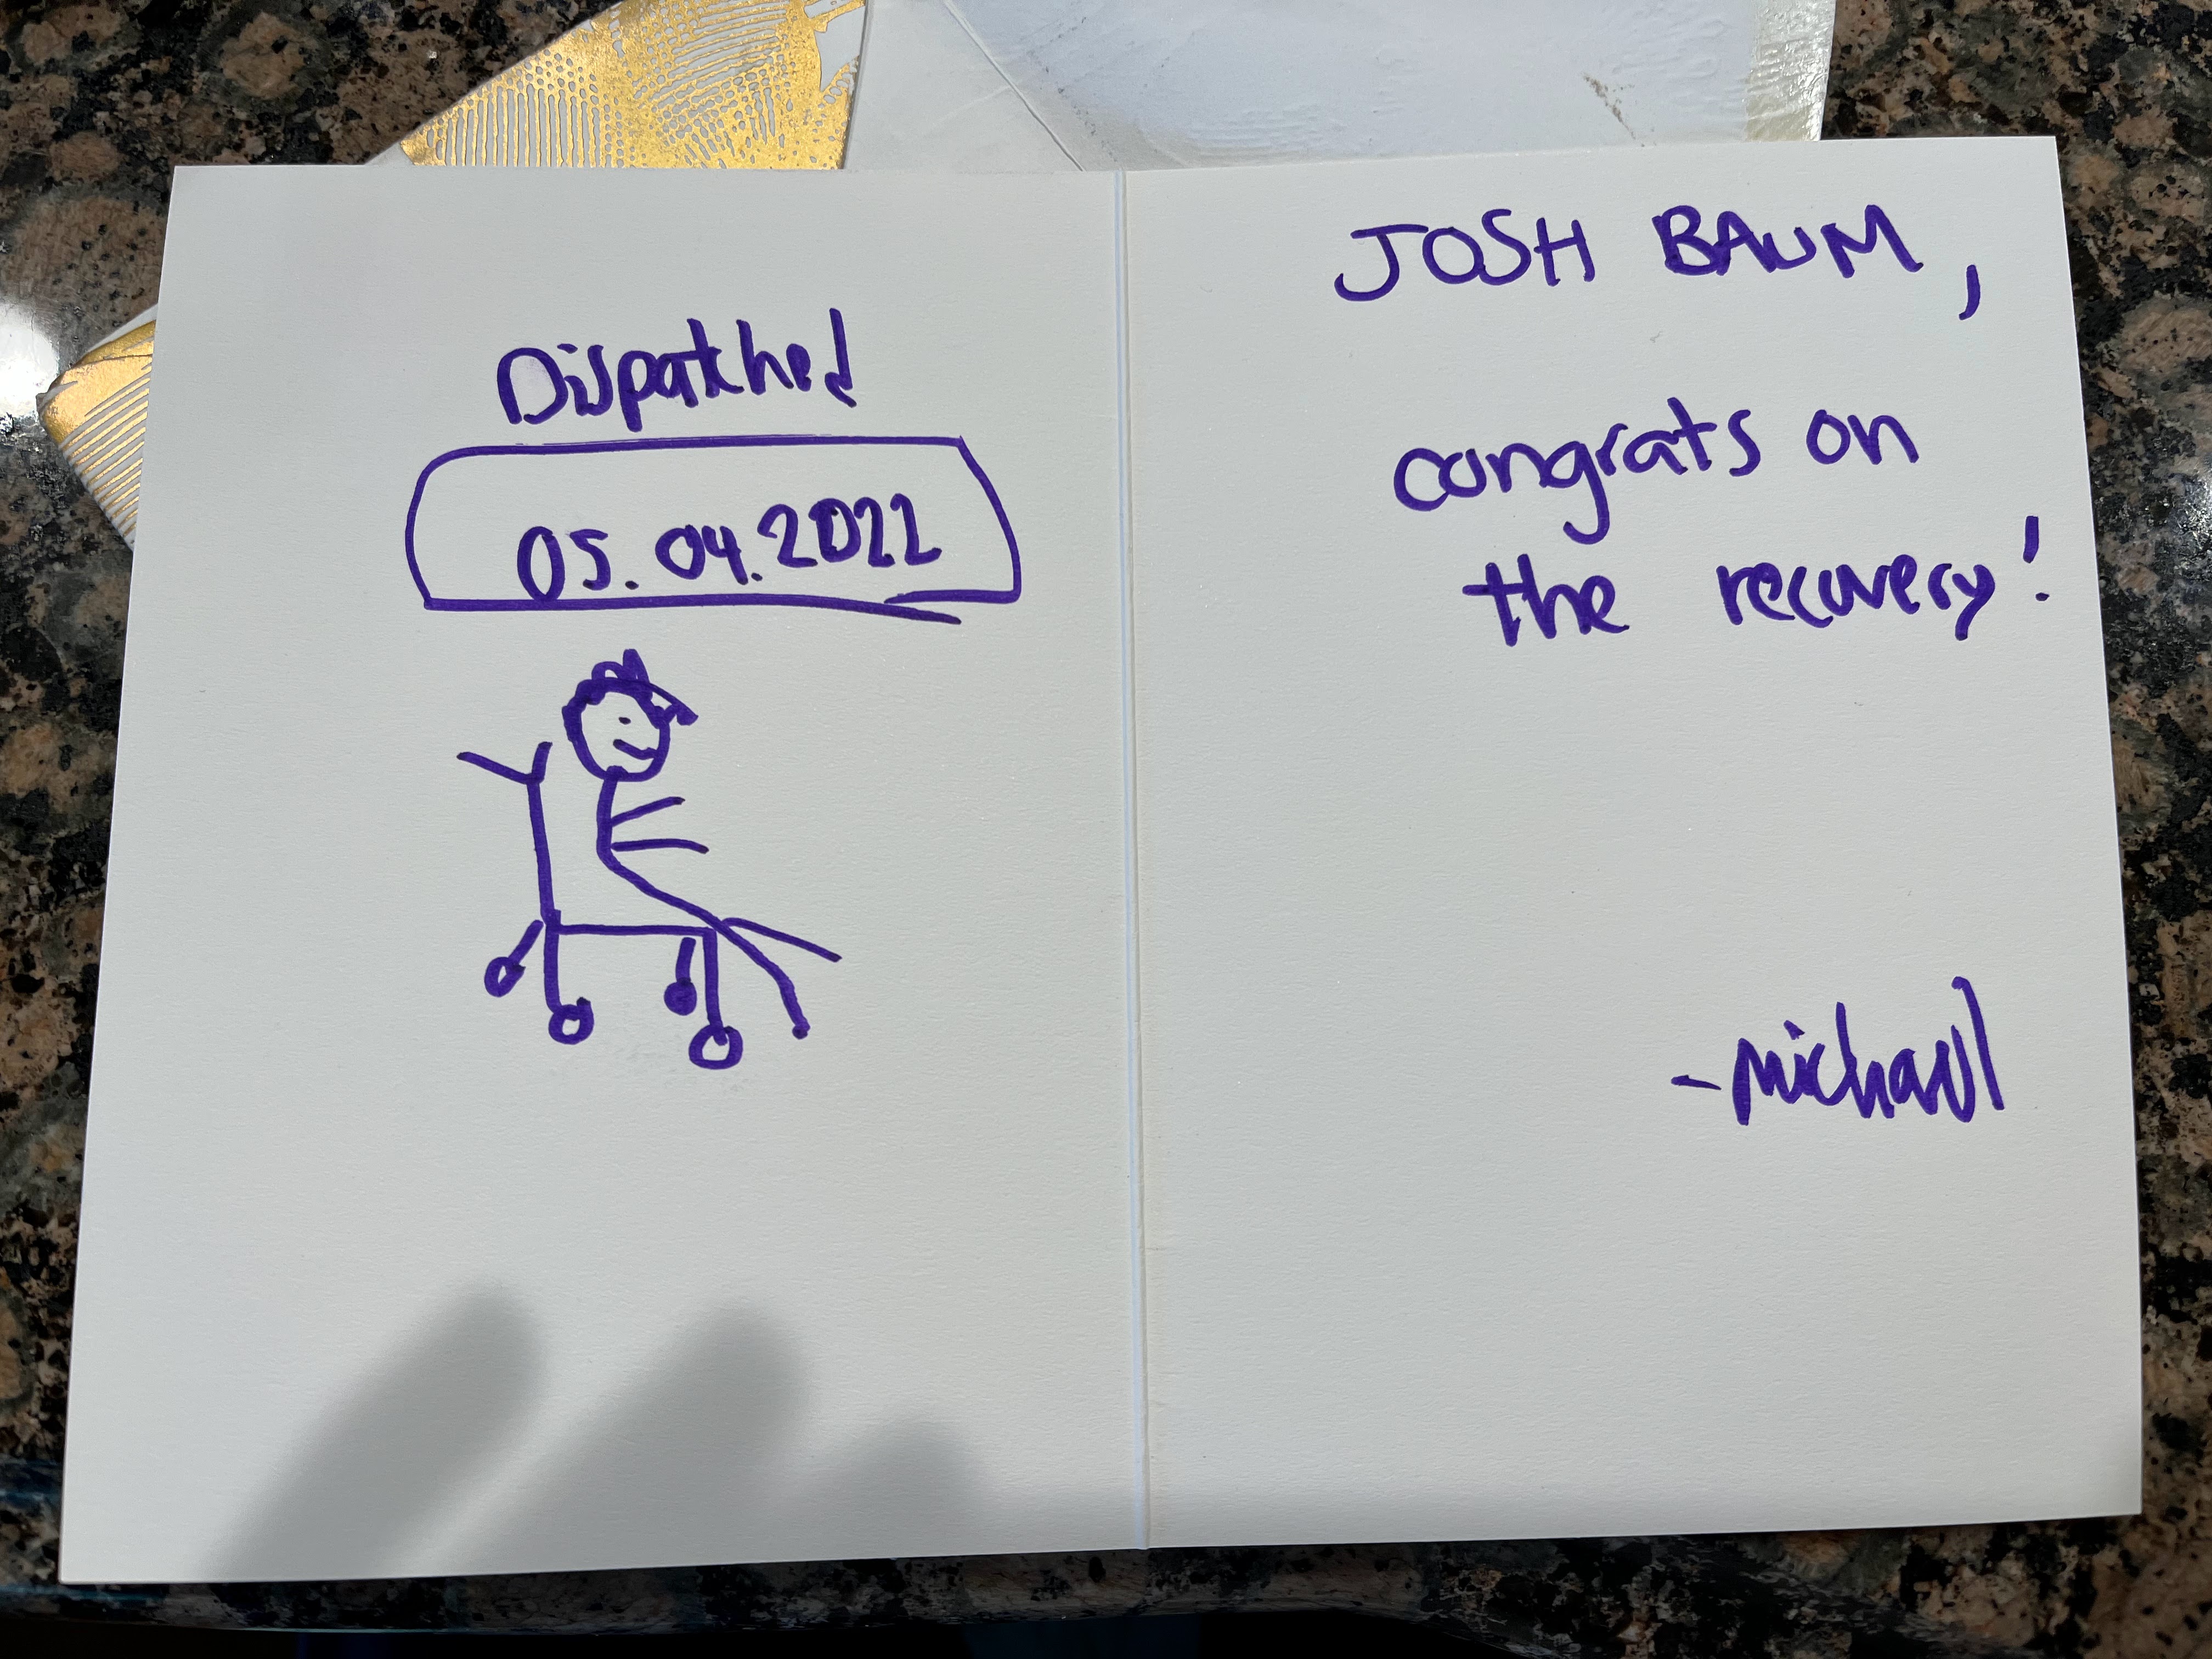 Dispatched
05.04.2022
JOSH BAUM,
congrats on
the recovery!
-michael